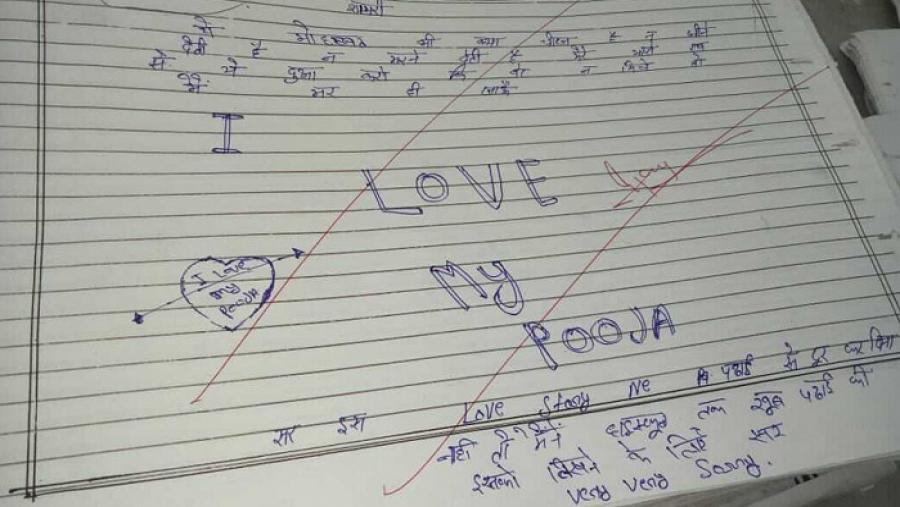 शायरी
ये मोहब्बत भी क्या चीज है न जीने
देती है न मरने देती है
से ये दुआ करो कि वो न मिले तो
मर ही जाऊँ
I
LOVE
I Love
my
Pooja
My
POOJA
सर इस Love Story Ne पढाई से दूर कर दिया
नही तो मैने हाइस्कूल तक खूब पढाई की
इसको लिखने के लिये सर
very very Soory.